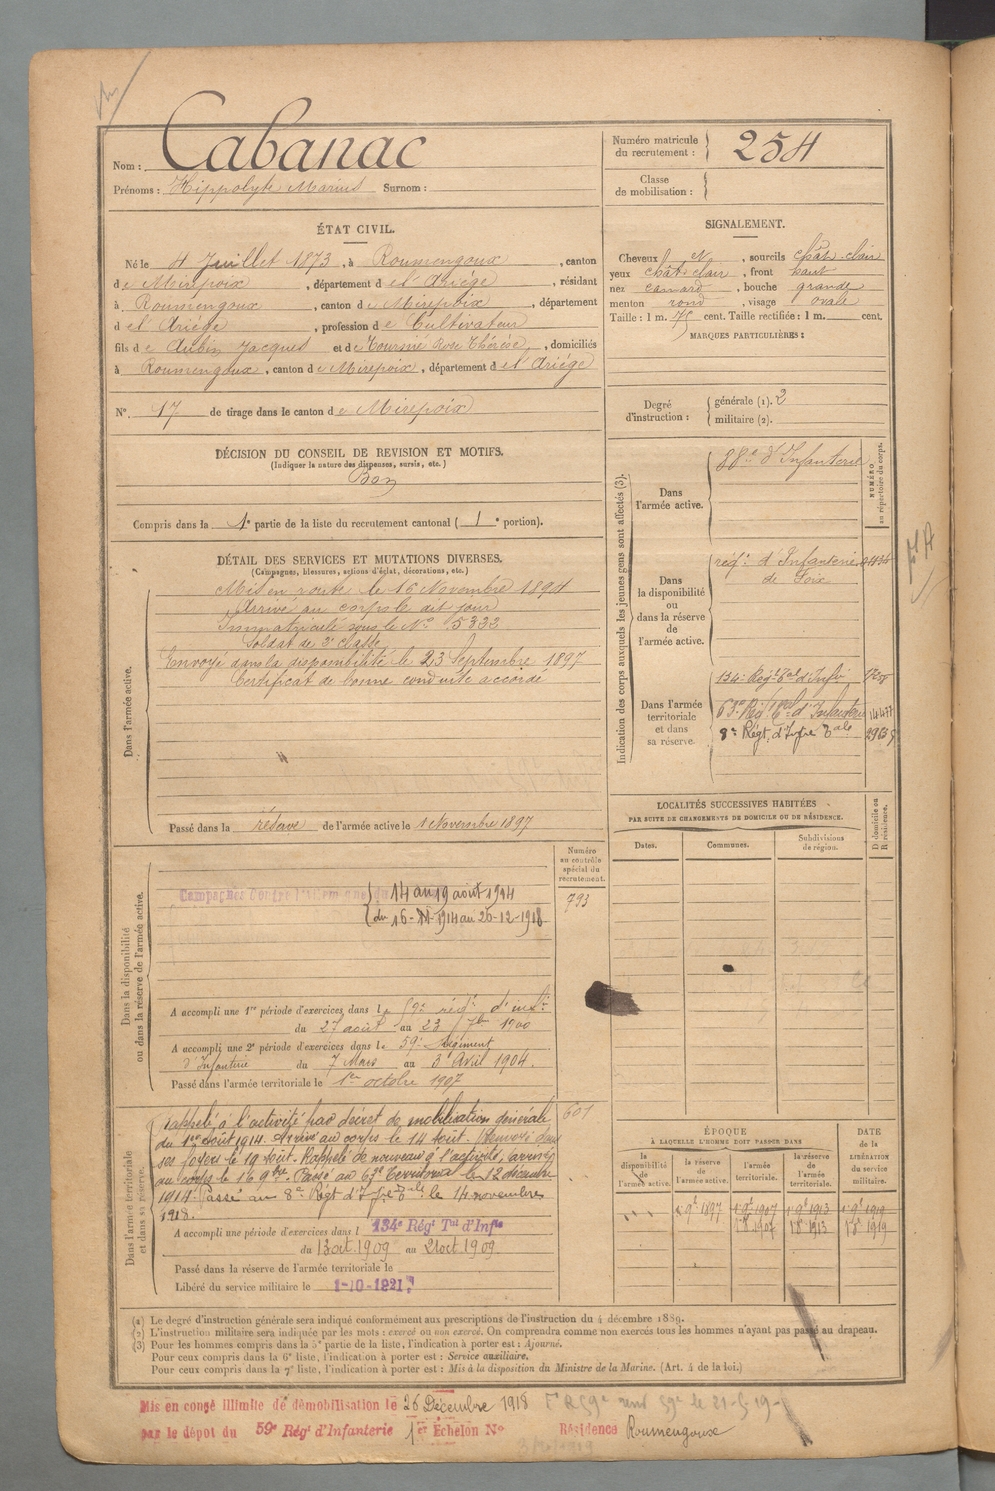 Nom : Cabanac
Prénoms : Hippolyte Marius Surnom :
Numéro matricule du recrutement : 254
Classe de mobilisation :
ÉTAT CIVIL.
Né le 4 Juillet 1873, à Roumengoux, canton
de Mirepoix, département de l'Ariège, résidant
à Roumengoux, canton de Mirepoix, département
de l'Ariège, profession de Cultivateur
fils de Aubin Jacques et de Tournié Rose Thérèse, domiciliés
à Roumengoux, canton de Mirepoix, département de l'Ariège
N° 17 de tirage dans le canton de Mirepoix
SIGNALEMENT.
Cheveux N, sourcils chât-clair
yeux chât-clair, front haut
nez camard, bouche grande
menton rond, visage ovale
Taille : 1 m. 75 cent. Taille rectifiée : 1 m. cent.
MARQUES PARTICULIÈRES :
Degré d'instruction : générale (1). 2
militaire (2).
DÉCISION DU CONSEIL DE REVISION ET MOTIFS.
(Indiquer la nature des dispenses, sursis, etc.)
Bon
Compris dans la 1e partie de la liste du recrutement cantonal ( 1e portion).
DÉTAIL DES SERVICES ET MUTATIONS DIVERSES.
(Campagnes, blessures, actions d'éclat, décorations, etc.)
Dans l'armée active.
Mis en route le 16 Novembre 1894
Arrivé au corps le dit jour
Immatriculé sous le N° 5332
Soldat de 2e classe
Envoyé dans la disponibilité le 23 Septembre 1897
Certificat de bonne conduite accordé
Passé dans la réserve de l'armée active le 1 Novembre 1897
Indication des corps auxquels les jeunes gens sont affectés (3).
NUMÉRO au répertoire du corps.
Dans l'armée active.
88e d'Infanterie
Dans la disponibilité ou dans la réserve de l'armée active.
régt d'Infanterie
de Foix
Dans l'armée territoriale et dans sa réserve.
134e Régt Tal d'Infie
63e Régt Tal d'Infanterie
8e Régt d'Infie Tale
LOCALITÉS SUCCESSIVES HABITÉES
PAR SUITE DE CHANGEMENTS DE DOMICILE OU DE RÉSIDENCE.
Dates.
Communes.
Subdivisions de région.
D domicile ou R résidence.
Dans la disponibilité ou dans la réserve de l'armée active.
Numéro au contrôle spécial du recrutement.
793
14 au 19 août 1914
du 16-11-1914 au 26-12-1918
A accompli une 1re période d'exercices dans le 59e régt d'inf.
du 27 août au 23 7bre 1900
A accompli une 2e période d'exercices dans le 59e régiment
d'Infanterie du 7 Mars au 3 Avril 1904.
Passé dans l'armée territoriale le 1er octobre 1907
Dans l'armée territoriale et dans sa réserve.
601
Rappelé à l'activité par décret de mobilisation générale
du 1er août 1914. Arrivé au corps le 14 août. Renvoyé dans
ses foyers le 19 août. Rappelé de nouveau à l'activité, arrivé
au corps le 16 9bre. Passé au 63e territorial le 12 décembre
1914. Passé au 8e Régt d'Infie Tale le 14 novembre
1918.
A accompli une période d'exercices dans l 134e Régt Tal d'Infie
du 13 oct 1909 au 21 oct 1909
Passé dans la réserve de l'armée territoriale le
Libéré du service militaire le 1-10-1921
ÉPOQUE
À LAQUELLE L'HOMME DOIT PASSER DANS
la disponibilité de l'armée active.
la réserve de l'armée active.
l'armée territoriale.
la réserve de l'armée territoriale.
DATE de la LIBÉRATION du service militaire.
(1) Le degré d'instruction générale sera indiqué conformément aux prescriptions de l'instruction du 4 décembre 1889.
(2) L'instruction militaire sera indiquée par les mots : exercé ou non exercé. On comprendra comme non exercés tous les hommes n'ayant pas passé au drapeau.
(3) Pour les hommes compris dans la 5e partie de la liste, l'indication à porter est : Ajourné.
Pour ceux compris dans la 6e liste, l'indication à porter est : Service auxiliaire.
Pour ceux compris dans la 7e liste, l'indication à porter est : Mis à la disposition du Ministre de la Marine. (Art. 4 de la loi.)
Mis en congé illimité de démobilisation le 26 Décembre 1918
par le dépôt du 59e Régt d'Infanterie 1er Échelon N° Résidence Roumengoux